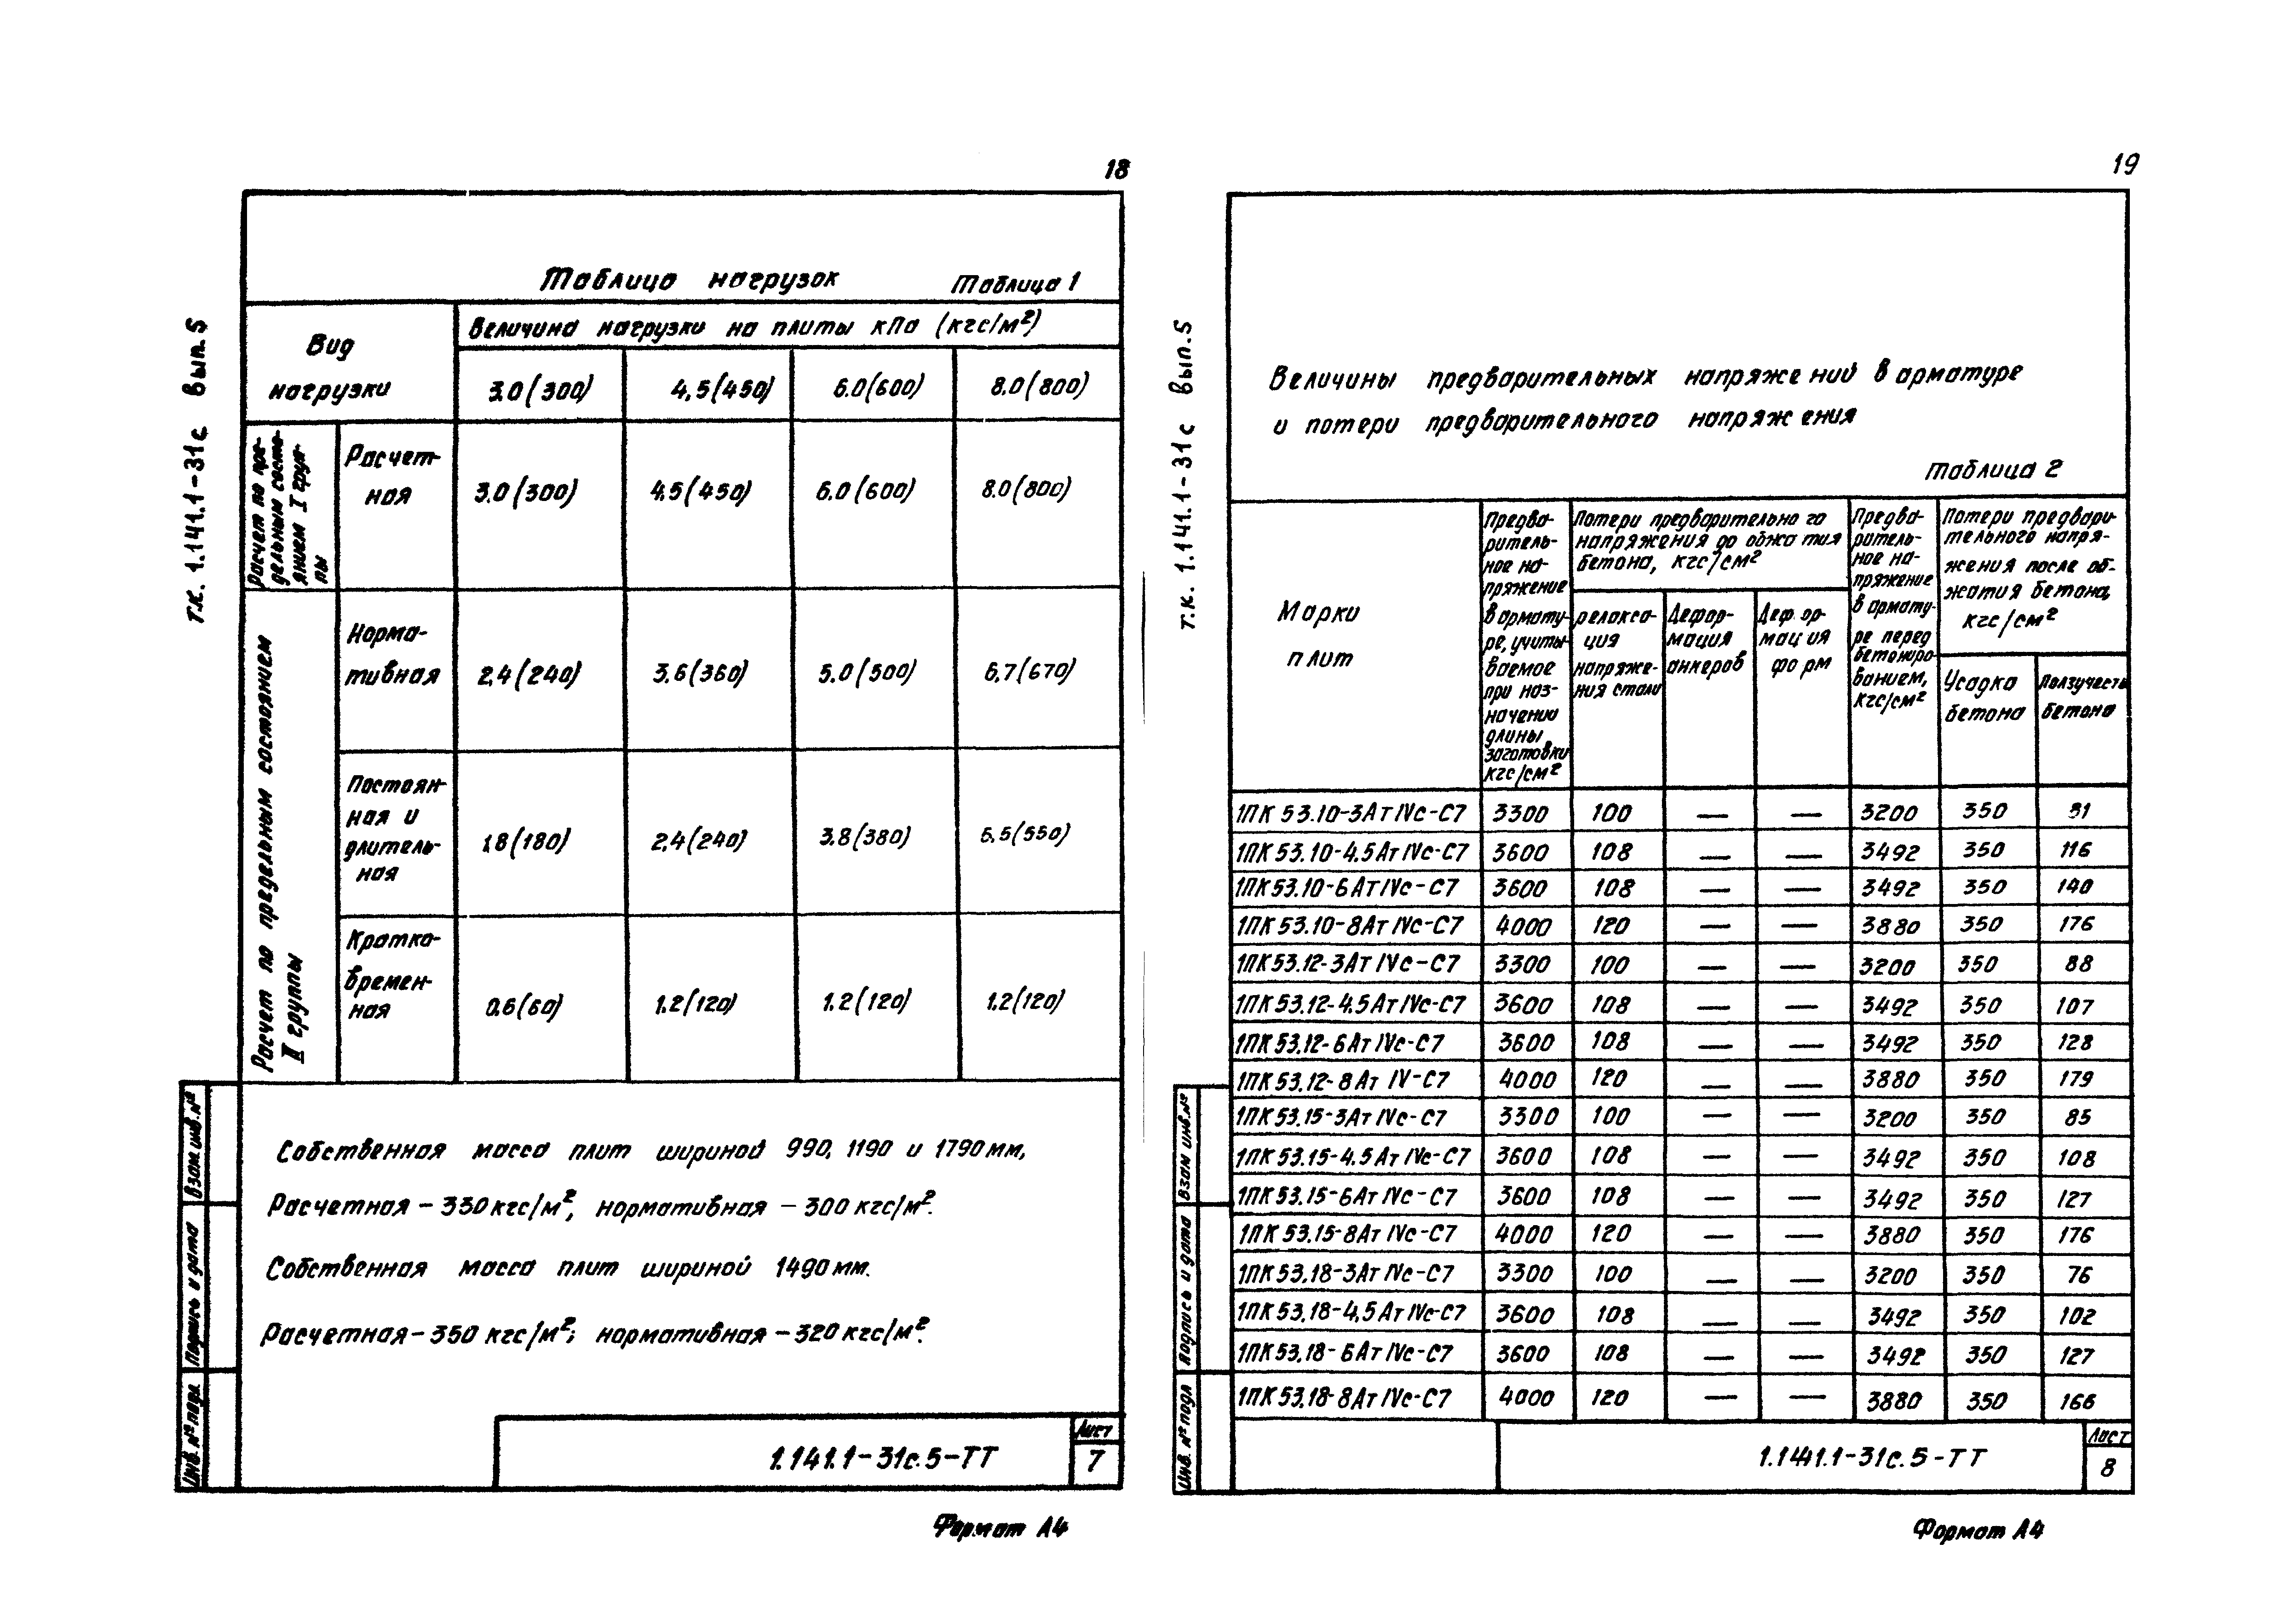 18
т.к. 1.141.1-31с вып.5
Таблица нагрузок Таблица 1
Вид нагрузки
Величина нагрузки на плиты кПа (кгс/м²)
3.0(300) 4,5(450) 6.0(600) 8.0(800)
Расчет по пре-
дельным состо-
янием I груп-
пы
Расчет-
ная
3.0(300) 4,5(450) 6.0(600) 8.0(800)
Расчет по предельным состоянием
II группы
Норма-
тивная
2,4(240) 3.6(360) 5.0(500) 6,7(670)
Постоян-
ная и
длитель-
ная
1.8(180) 2,4(240) 3.8(380) 5,5(550)
Кратко-
времен-
ная
0.6(60) 1.2(120) 1.2(120) 1.2(120)
Собственная масса плит шириной 990, 1190 и 1790мм,
Расчетная – 330кгс/м², нормативная – 300 кгс/м².
Собственная масса плит шириной 1490мм.
Расчетная – 350 кгс/м²; нормативная – 320кгс/м².
Взам.инв.№
Подпись и дата
Инв. № подл
1.141.1-31с.5-ТТ
Лист
7
Формат А4
19
т.к. 1.141.1-31с вып.5
Величины предварительных напряжений в арматуре
и потери предварительного напряжения
таблица 2
Марки
плит
Предва-
ритель-
ное на-
пряжение
в армату-
ре, учиты-
ваемое
при наз-
начении
длины
заготовки
кгс/см²
Потери предварительного
напряжения до обжатия
бетона, кгс/см²
релакса-
ция
напряже-
ния стали
Дефор-
мация
анкеров
Дефор-
мация
форм
Предва-
ритель-
ное на-
пряжение
в армату-
ре перед
бетониро-
ванием,
кгс/см²
Потери предвари-
тельного напря-
жения после об-
жатия бетона,
кгс/см²
Усадка
бетона
Ползучесть
бетона
1ПК 53.10-3АтIVс-С7 3300 100 — — 3200 350 91
1ПК 53.10-4,5АтIVс-С7 3600 108 — — 3492 350 116
1ПК 53.10-6АтIVс-С7 3600 108 — — 3492 350 140
1ПК 53.10-8АтIVс-С7 4000 120 — — 3880 350 176
1ПК 53.12-3АтIVс-С7 3300 100 — — 3200 350 88
1ПК 53.12-4,5АтIVс-С7 3600 108 — — 3492 350 107
1ПК 53.12-6АтIVс-С7 3600 108 — — 3492 350 128
1ПК 53.12-8АтIV-С7 4000 120 — — 3880 350 179
1ПК 53.15-3АтIVс-С7 3300 100 — — 3200 350 85
1ПК 53.15-4.5АтIVс-С7 3600 108 — — 3492 350 108
1ПК 53.15-6АтIVс-С7 3600 108 — — 3492 350 127
1ПК 53.15-8АтIVс-С7 4000 120 — — 3880 350 176
1ПК 53.18-3АтIVс-С7 3300 100 — — 3200 350 76
1ПК 53.18-4,5АтIVс-С7 3600 108 — — 3492 350 102
1ПК 53.18-6АтIVс-С7 3600 108 — — 3492 350 127
1ПК 53.18-8АтIVс-С7 4000 120 — — 3880 350 166
Взам инв.№
Подпись и дата
Инв. № подл
1.141.1-31с.5-ТТ
Лист
8
Формат А4